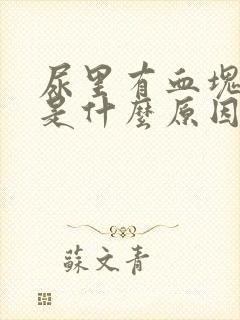 尿里有血塊
是什麼原因
蘇文青